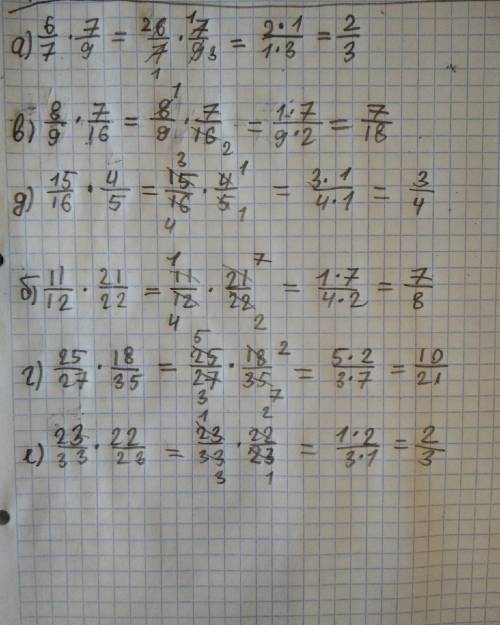 а) 6/7 · 7/9 = ²6/7₁ · ¹7/9₃ = 2·1/1·3 = 2/3
в) 8/9 · 7/16 = 8¹/9 · 7/16₂ = 1·7/9·2 = 7/18
д) 15/16 · 4/5 = 15³/16₄ · 4¹/5₁ = 3·1/4·1 = 3/4
б) 11/12 · 21/22 = 11¹/12₄ · 21⁷/22₂ = 1·7/4·2 = 7/8
г) 25/27 · 18/35 = 25⁵/27₃ · 18²/35₇ = 5·2/3·7 = 10/21
е) 23/33 · 22/23 = 23¹/33₃ · 22²/23₁ = 1·2/3·1 = 2/3